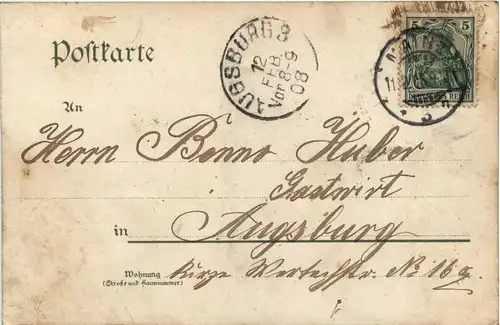 Postkarte
AUGSBURG 3
12
FEB
Vor 8-9
08
5 5
MAINZ
11.
An
Herrn Benno Huber
Gastwirt
in Augsburg
Wohnung Kurze Wertachstr. No 16 a.
(Straße und Hausnummer)